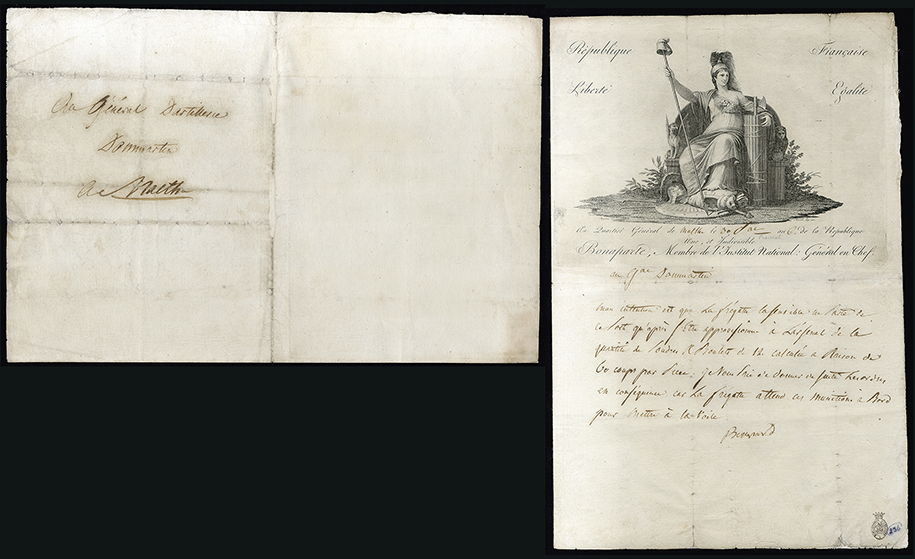 Au Général D'artillerie
Dommartin
A Malthe
République Française
Liberté Egalité
Au Quartier Général de Malthe le 30 an 6e. de la République
Une, et Indivisible
Bonaparte, Membre de l'Institut National: Général en Chef.
au Gal Dommartin
mon intention est que la frégate la sensible ne parte de
ce Port qu'après s'être approvisionné à L'arsenal de la
quantité de Poudres, & Boulets de 12 calculée a Raison de
60 coups par Piece; je vous Prie de donner de suite les ordres
en conséquence car la frégate attend ces Munitions à Bord
pour Mettre à la Voile
Bonaparte